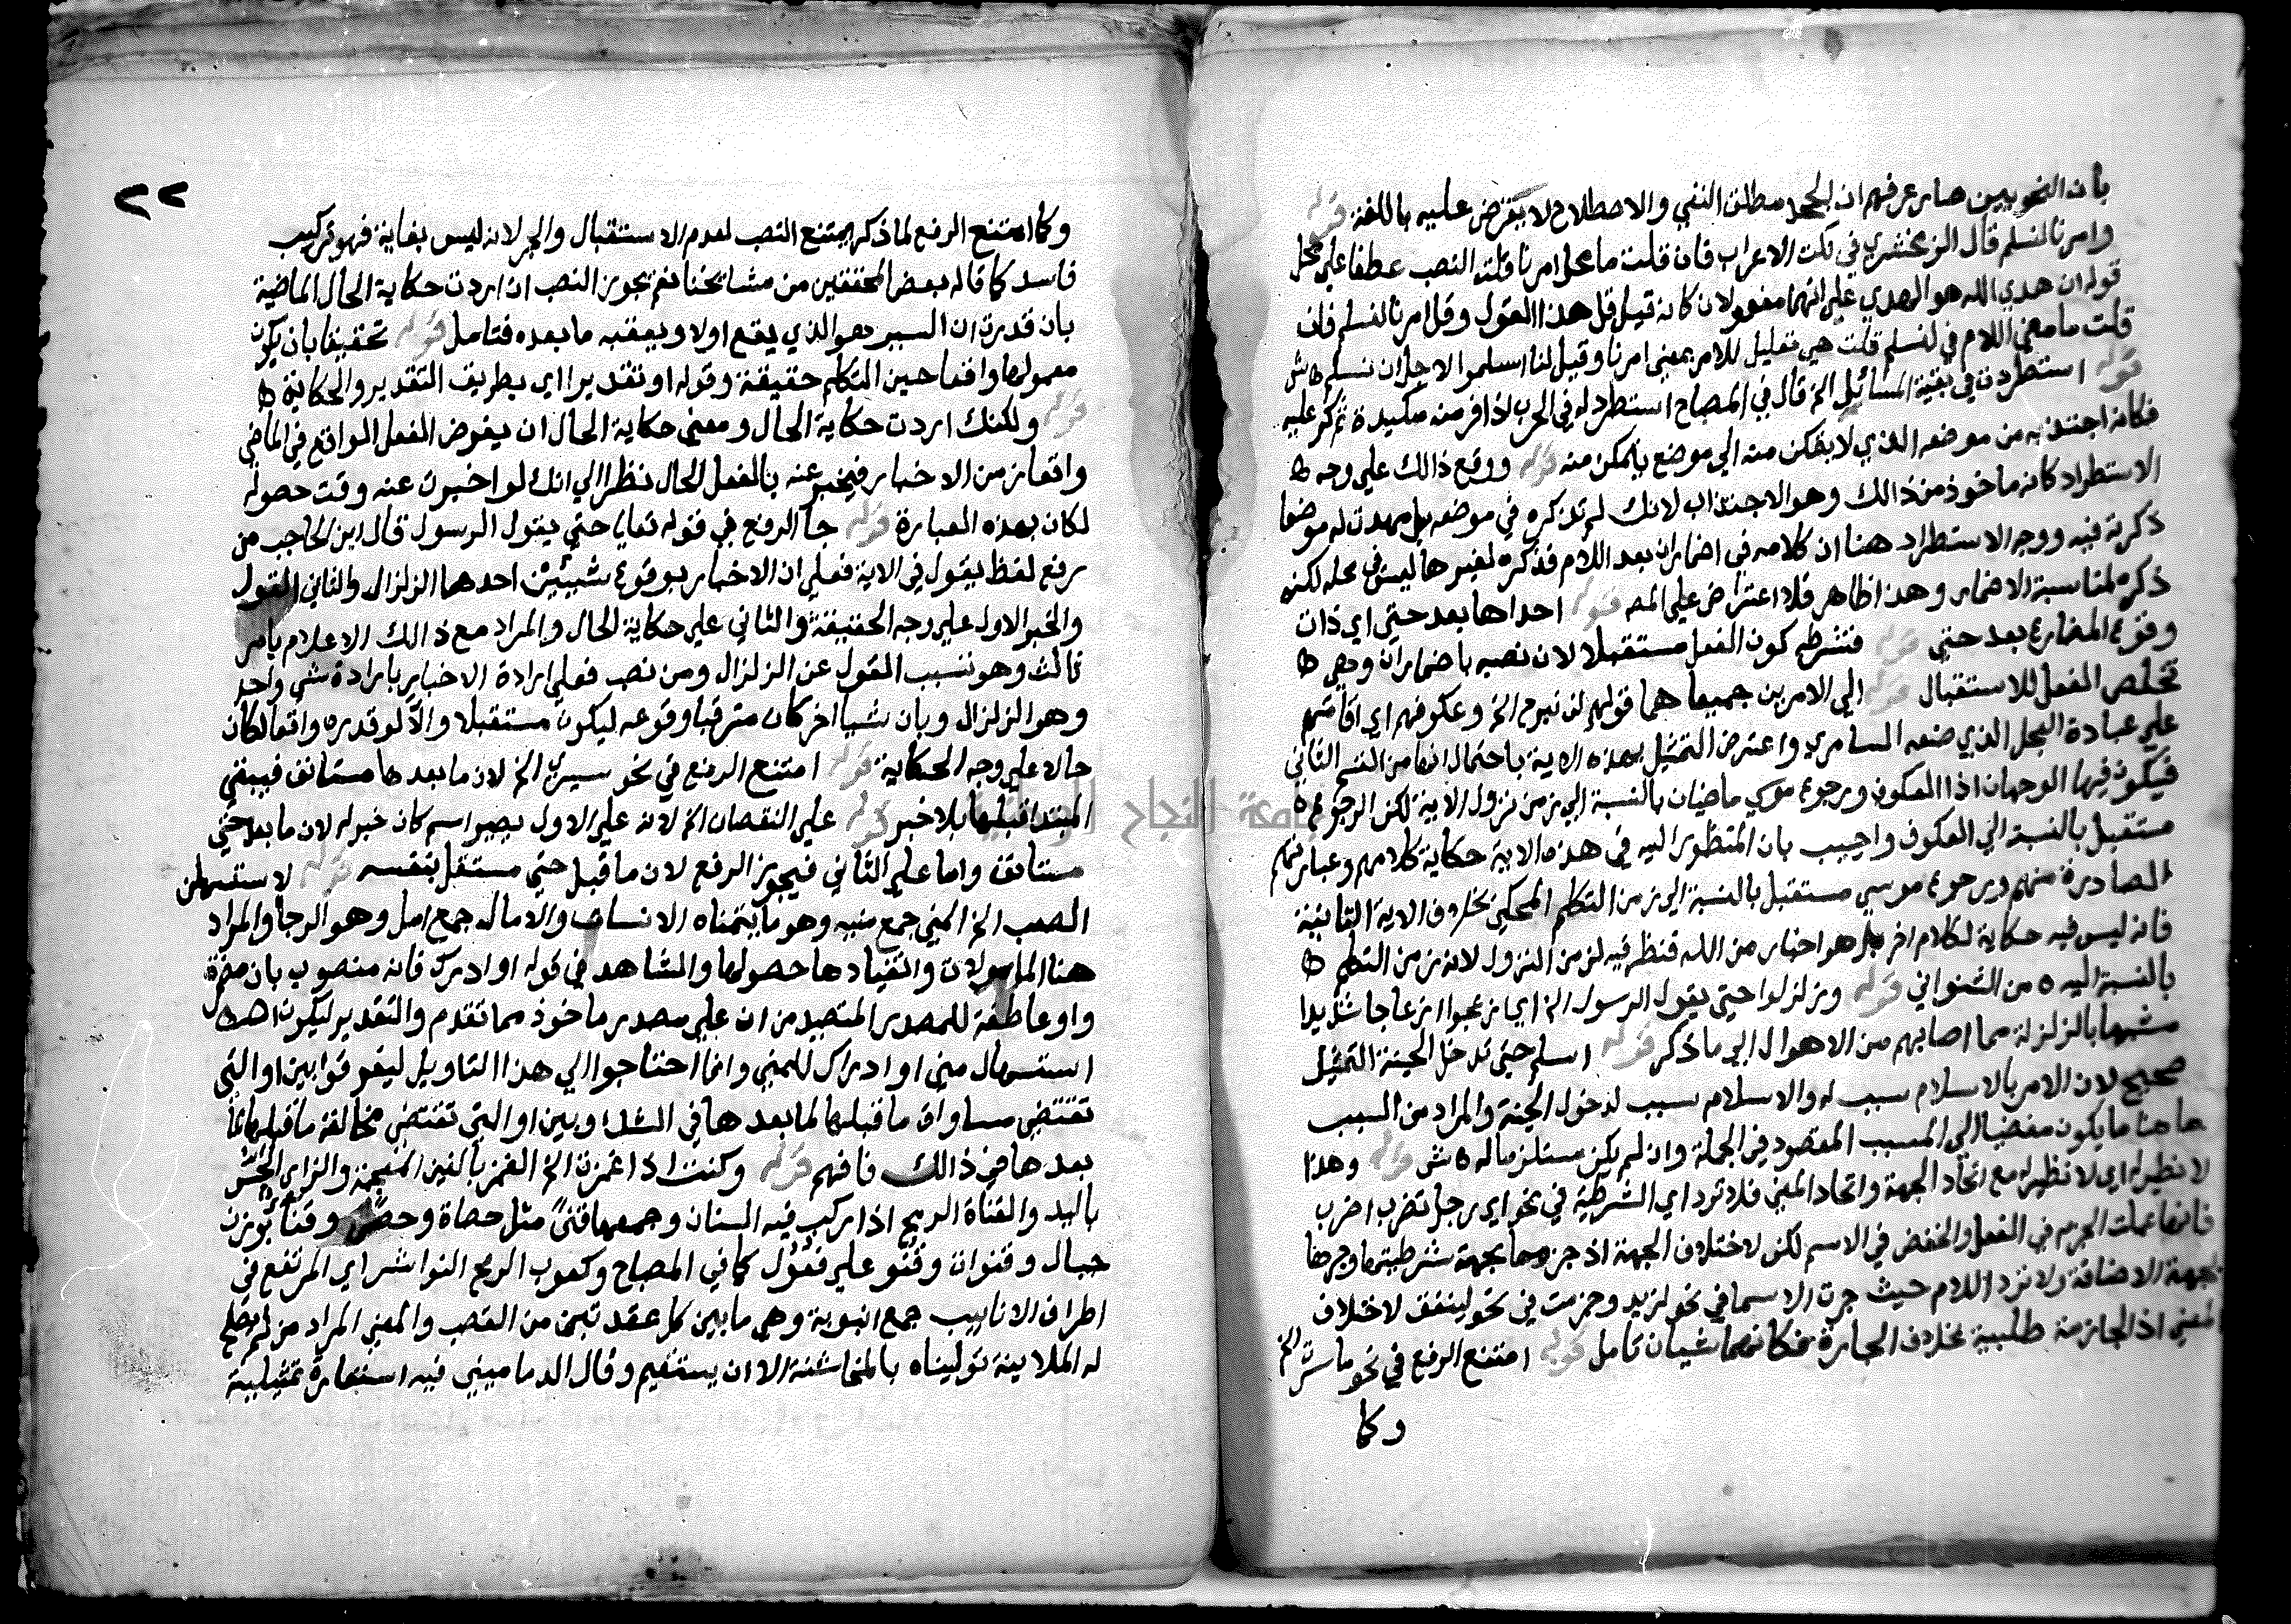 بان النحويين صار عرفهم ان الجحد مطلق النفي والاصطلاح لا يعترض عليه باللغة قوله
وامرنا لنسلم قال الزمخشري في نكت الاعراب فان قلت ما محل امرنا قلت النصب عطفا علي محل
قوله ان هدي الله هو الهدي علي انهما مقولان كانه قيل قل هذا القول وقل امرنا لنسلم فان
قلت ما معني اللام في لنسلم قلت هي تعليل للامر بمعني امرنا وقيل لنا اسلموا لاجل ان نسلم ش
قوله استطردت في بقية المسائل الخ قال في المصباح استطرد له في الحرب اذا فر منه مكيدة ثم كر عليه
فكانه اجتذبه من موضعه الذي لا يتمكن منه الي موضع يتمكن منه قوله ووقع ذالك علي وجه ط
الاستطراد كانه ماخوذ من ذالك وهو الاجتذاب لانك لم تذكره في موضعه بل مهدت له موضعا
ذكرته فيه ووجه الاستطراد هنا ان كلامه في اضمار ان بعد اللام فذكره لغيرها ليس في محله لكنه
ذكره لمناسبة الاضمار وهذا ظاهر فلا اعتراض علي المص قوله احداها بعد حتي اي ذات
وقوع المضارع بعد حتي قوله فشرطه كون الفعل مستقبلا لان نصبه باضمار ان وهي ط
تخلص الفعل للاستقبال قوله الي الامرين جميعا هما قولهم لن نبرح الخ وعكوفهم اي اقامتهم
علي عبادة العجل الذي صنعه السامري واعترض التمثيل بهذه الاية باحتمال انها من القسم الثاني
فيكون فيها الوجهان اذ العكوف ورجوع موسي ماضيان بالنسبة الي زمن نزول الاية لكن الرجوع
مستقبل بالنسبة الي العكوف واجيب بان المنظور اليه في هذه الاية حكاية كلامهم وعبارتهم
الصادرة منهم ورجوع موسي مستقبل بالنسبة الي زمن التكلم المحكي بخلاف الاية الثانية
فانه ليس فيه حكاية لكلام اخر بل هو اخبار من الله فنظر فيه لزمن النزول لانه زمن التكلم ط
بالنسبة اليه ه من الشنواني قوله وزلزلوا حتي يقول الرسول الخ اي ازعجوا ازعاجا شديدا
مشبها بالزلزلة مما اصابهم من الاهوال الي ما ذكر قوله اسلم حتي تدخل الجنة التمثيل
صحيح لان الامر بالاسلام سبب له والاسلام سبب لدخول الجنة والمراد من السبب
هاهنا ما يكون مفضيا الي المسبب المقصود في الجملة وان لم يكن مستلزما له ه ش قوله وهذا
لا نظير له اي لا نظير له مع اتحاد الجهة واتحاد المعني فلا ترد اي الشرطية في نحو اي رجل تضرب اضرب
فانها عملت الجزم في الفعل والخفض في الاسم لكن لاختلاف الجهة اذ جزمها بجهة شرطيتها وجرها
بجهة الاضافة ولا ترد اللام حيث جرت الاسما في نحو لزيد وجزمت في نحو لينفق لاختلاف
المعني اذ الجازمة طلبية بخلاف الجارة فكانهما شيان تامل قوله امتنع الرفع في نحو ما سرت الخ
وكما
٢٢
وكما امتنع الرفع لما ذكر يمتنع النصب لعدم الاستقبال والجر لانه ليس بغاية فهو تركيب
فاسد كما قاله بعض المحققين من مشايخنا نعم يجوز النصب ان اردت حكاية الحال الماضية
بان قدرت ان السير هو الذي يقع اولا ويعقبه ما بعده فتامل قوله تحقيقا بان يكون
معمولها واقعا حين التكلم حقيقة وقوله او تقديرا اي بطريق التقدير والحكاية ط
قوله ولكنك اردت حكاية الحال ومعني حكاية الحال ان يفرض الفعل الواقع في الماضي
واقعا زمن الاخبار فيخبر عنه بالفعل الحال نظرا الي انك لو اخبرت عنه وقت حصوله
لكان بهذه العبارة قوله جا الرفع في قوله تعالي حتي يقول الرسول قال ابن الحاجب من
رفع لفظ يقول في الاية فعلي ان الاخبار بوقوع شيئين احدهما الزلزال والثاني القول
والخبر الاول علي وجه الحقيقة والثاني علي حكاية الحال والمراد مع ذالك الاعلام بامر
ثالث وهو تسبب القول عن الزلزال ومن نصب فعلي ارادة الاخبار بارادة شي واحد
وهو الزلزال وبان شيا اخر كان مترقبا وقوعه ليكون مستقبلا والا لو قدره واقعا لكان
حالا علي وجه الحكاية قوله امتنع الرفع في نحو سيري الخ لان ما بعدها مستانف فيبقي
المبتدا قبلها بلا خبر قوله علي النقصان الخ لانه علي الاول يصير اسم كان خبر له لان ما بعد حتي
مستانف واما علي الثاني فيجوز الرفع لان ما قبل حتي مستقل بنفسه قوله لاستسهلن
الصعب الخ المني جمع منيه وهو ما يتمناه الانسان والامال جمع امل وهو الرجا والمراد
هنا المامولات وانقيادها حصولها والشاهد في قوله او ادرك فانه منصوب بان مضمرة
واو عاطفة للمصدر المتصيد من ان علي مصدر ماخوذ مما تقدم والتقدير ليكون
استسهال مني او ادراك للمني وانما احتاجوا الي هذا التاويل ليفرقوا بين او التي
تقتضي مساواة ما قبلها لما بعدها في الشك وبين او التي تقتضي مخالفة ما قبلها لما
بعدها في ذالك فافهم قوله وكنت اذا غمزت الخ الغمز بالغين المعجمة والزاي الجس
باليد والقناة الرمح اذا ركب فيه السنان وجمعها قنىً مثل حصاة وحصىً وقناء بوزن
جبال وقنوات وقنو علي فعول كما في المصباح وكعوب الرمح النواشر اي المرتفع في
اطراف الانابيب جمع انبوبة وهي ما بين كل عقد تبين من القصب والمعني المراد من لم يصلح
له الملاينة توليناه بالمخاشنة الا ان يستقيم وقال الدماميني فيه استعارة تمثيلية
جامعة النجاح